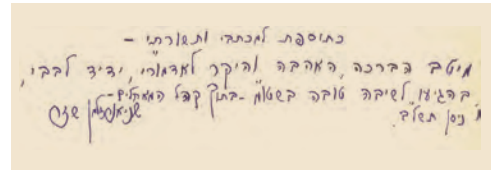 כתוספת למכתבי ותשורתי –
מיטב הברכה, האהבה והיקר לאדמו"ר, ידיד לבבי,
בהגיעו לשיבה טובה בשטומ"מ – בתוך קהל המאחלים –
ניסן תשל"ב. שניאור זלמן שזר